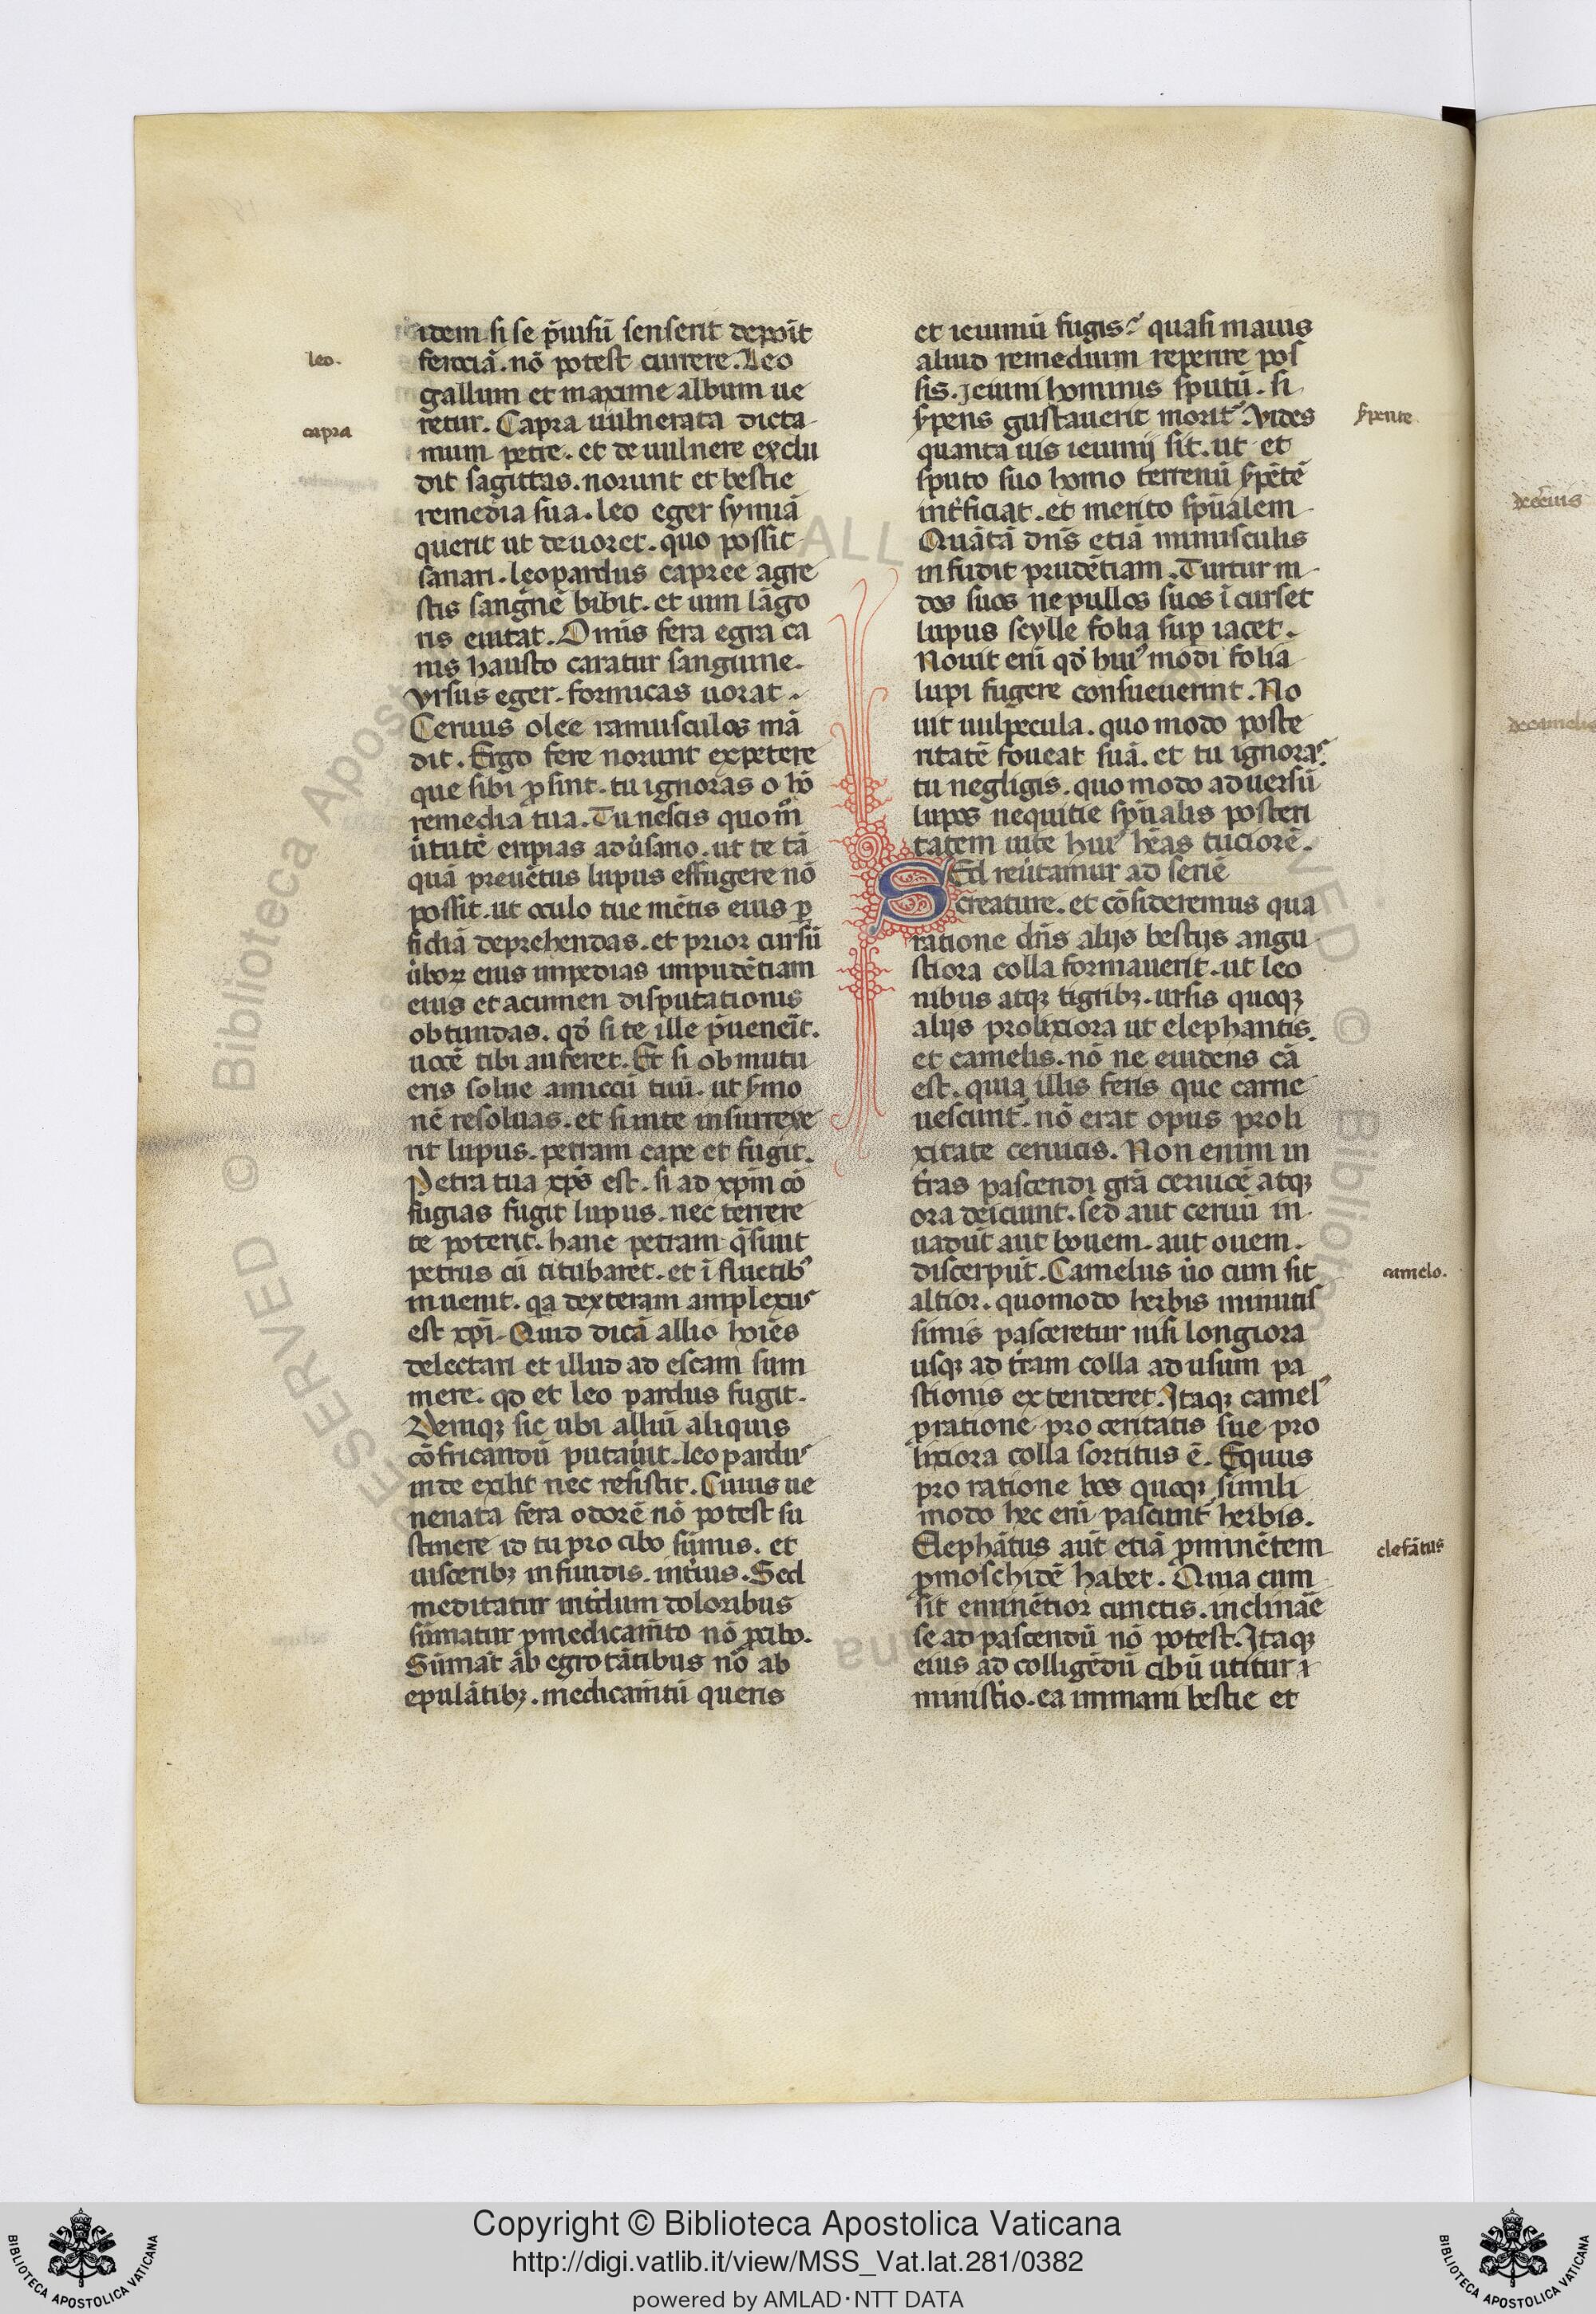 idem si se p̄uisū senserit deponit
ferociā. nō potest currere. Leo
leo.
gallum et maxime album ue
retur. Capra uulnerata dicta
capra
mum petre. et de uulnere exclu
dit sagittas. norunt et bestie
remedia sua. leo eger symiā
querit ut deuoret. quo possit
sanari. leopardus capree agre
stis sangnē bibit. et uim lāgo
ris euitat. Omīs fera egra ca
nis hausto caratur sanguine.
Vrsus eger. formicas uorat.
Ceruus olee ramusculos mā
dit. Ergo fere norunt expetere
que sibi ꝓsint. tu ignoras o hō
remedia tua. Tu nescis quom̊
u̇tutē eripias adu̇sario. ut te tā
quā preuētus lupus effugere nō
possit. ut oculo tue mētis eius ꝑ
fidiā deprehendas. et prior cursū
u̇boꝝ eius impedias impudētiam
eius et acumen disputationis
obtundas. qd̓ si te ille p̄uenerit.
uocē tibi auferet. Et si obmutu
eris solue amiccū tuū. ut s̓mo
nē resoluas. et si in te insurrexe
rit lupus. petram cape et fugit.
Petra tua xp̄s est. si ad xp̄m cō
fugias fugit lupus. nec terrere
te poterit. hanc petram q̄siuit
petrus cū titubaret. et ī fluctibꝰ
inuenit. qa dexteram amplexus
est xp̄i. Quid dicā allio hoīēs
delectari et illud ad escam sum
mere. qd et leo pardus fugit.
Deniqꝫ sic ubi alliū aliquis
cōfricandū putauit. leo pardus
inde exilit nec resistit. Cuius ue
nenata fera odorē nō potest su
stinere id tu pro cibo sūmis. et
uisceribꝫ infundis. int̓ius. Sed
meditatur int̓dum doloribus
sūmatur ꝓ medicam̄to nō ꝓ cibo.
Sūmat̓ ab egrotātibus nō ab
epulātibꝫ. medicam̄tū queris
et ieiuniū fugis? quasi mauis
aliud remedium reperire pos
sis. Jeiuni hominis sputū. si
s̓pens gustauerit morit̓. Vides
s̓pente
quanta uis ieiunij sit. ut et
sputo suo homo terrenū s̓pētē
int̓ficiat. et merito sp̄ualem
Quātā dn̄s etiā minusculis
infudit prudētiam. Turtur ni
dos suos ne pullos suos ī curset
lupus scylle folia suꝑ iacet.
Nouit eni qd̓ huiꝰ modi folia
lupi fugere consueuerint. No
uit uulpecula. quo modo poste
ritatē foueat suā. et tu ignoras.
tu negligis. quo modo aduersū
lupos nequitie sp̄ualis posteri
tatem uite huiꝰ hēas tuciorē.
SEd reu̇tamur ad seriē
creature. et cōsideremus qua
ratione dn̄s alijs bestijs angu
stiora colla formauerit. ut leo
nibus atqꝫ tigribꝫ. ursis quoqꝫ
alijs prolixiora ut elephantis.
et camelis. nō ne euidens cā
est. quia illis feris que carne
uescunt̓. nō erat opus proli
xitate ceruicis. Non enim in
t̓ras pascendi grā ceruicē atqꝫ
ora deiciunt. sed aut ceruū in
uadūt aut bouem. aut ouem.
discerpūt. Camelus u̇o cum sit
camelo.
altior. quomodo herbis minutis
simis pasceretur nisi longiora
usqꝫ ad t̓ram colla ad usum pa
stionis extenderet. Itaqꝫ camelꝰ
ꝓ ratione proceritatis sue pro
lixiora colla sortitus ē. Equus
pro ratione bos quoqꝫ simili
modo hec eni pascunt̓ herbis.
Elephātus aut̄ etiā ꝓminētem
elefātus
ꝓmoschidē habet. Quia cum
sit eminētior cunctis. inclināe
se ad pascendū nō potest. Itaqꝫ
eius ad colligēdū cibū utitur
minist̓io. ea immani bestie et
Copyright © Biblioteca Apostolica Vaticana
http://digi.vatlib.it/view/MSS_Vat.lat.281/0382
powered by AMLAD·NTT DATA
BIBLIOTECA APOSTOLICA VATICANA
BIBLIOTECA APOSTOLICA VATICANA